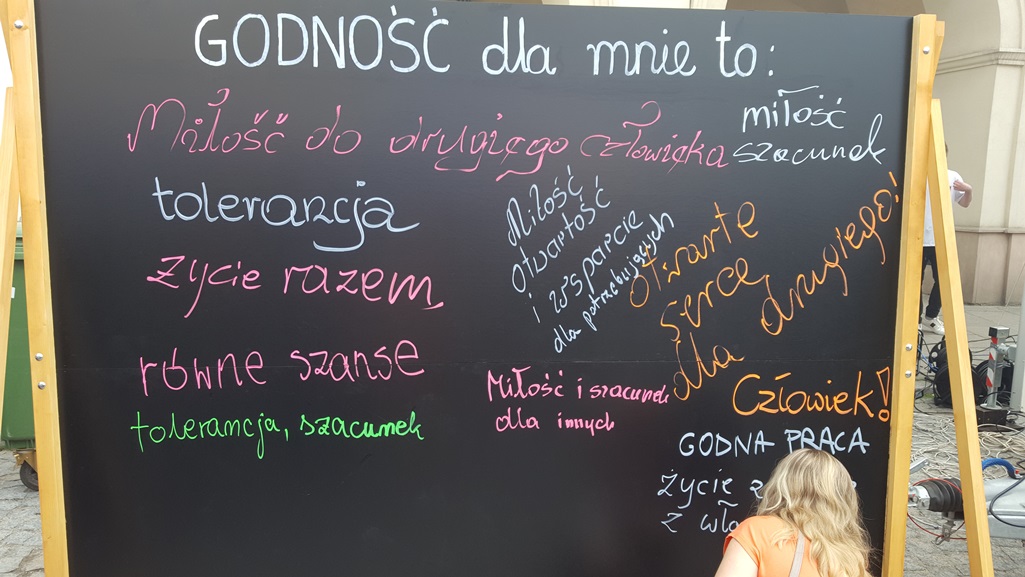 GODNOŚĆ dla mnie to:
Miłość do drugiego człowieka
miłość
szacunek
tolerancja
Miłość
otwartość
i wsparcie
dla potrzebujących
Otwarte
serce
dla drugiego!
życie razem
równe szanse
tolerancja, szacunek
Miłość i szacunek
dla innych
Człowiek!
GODNA PRACA
życie
z